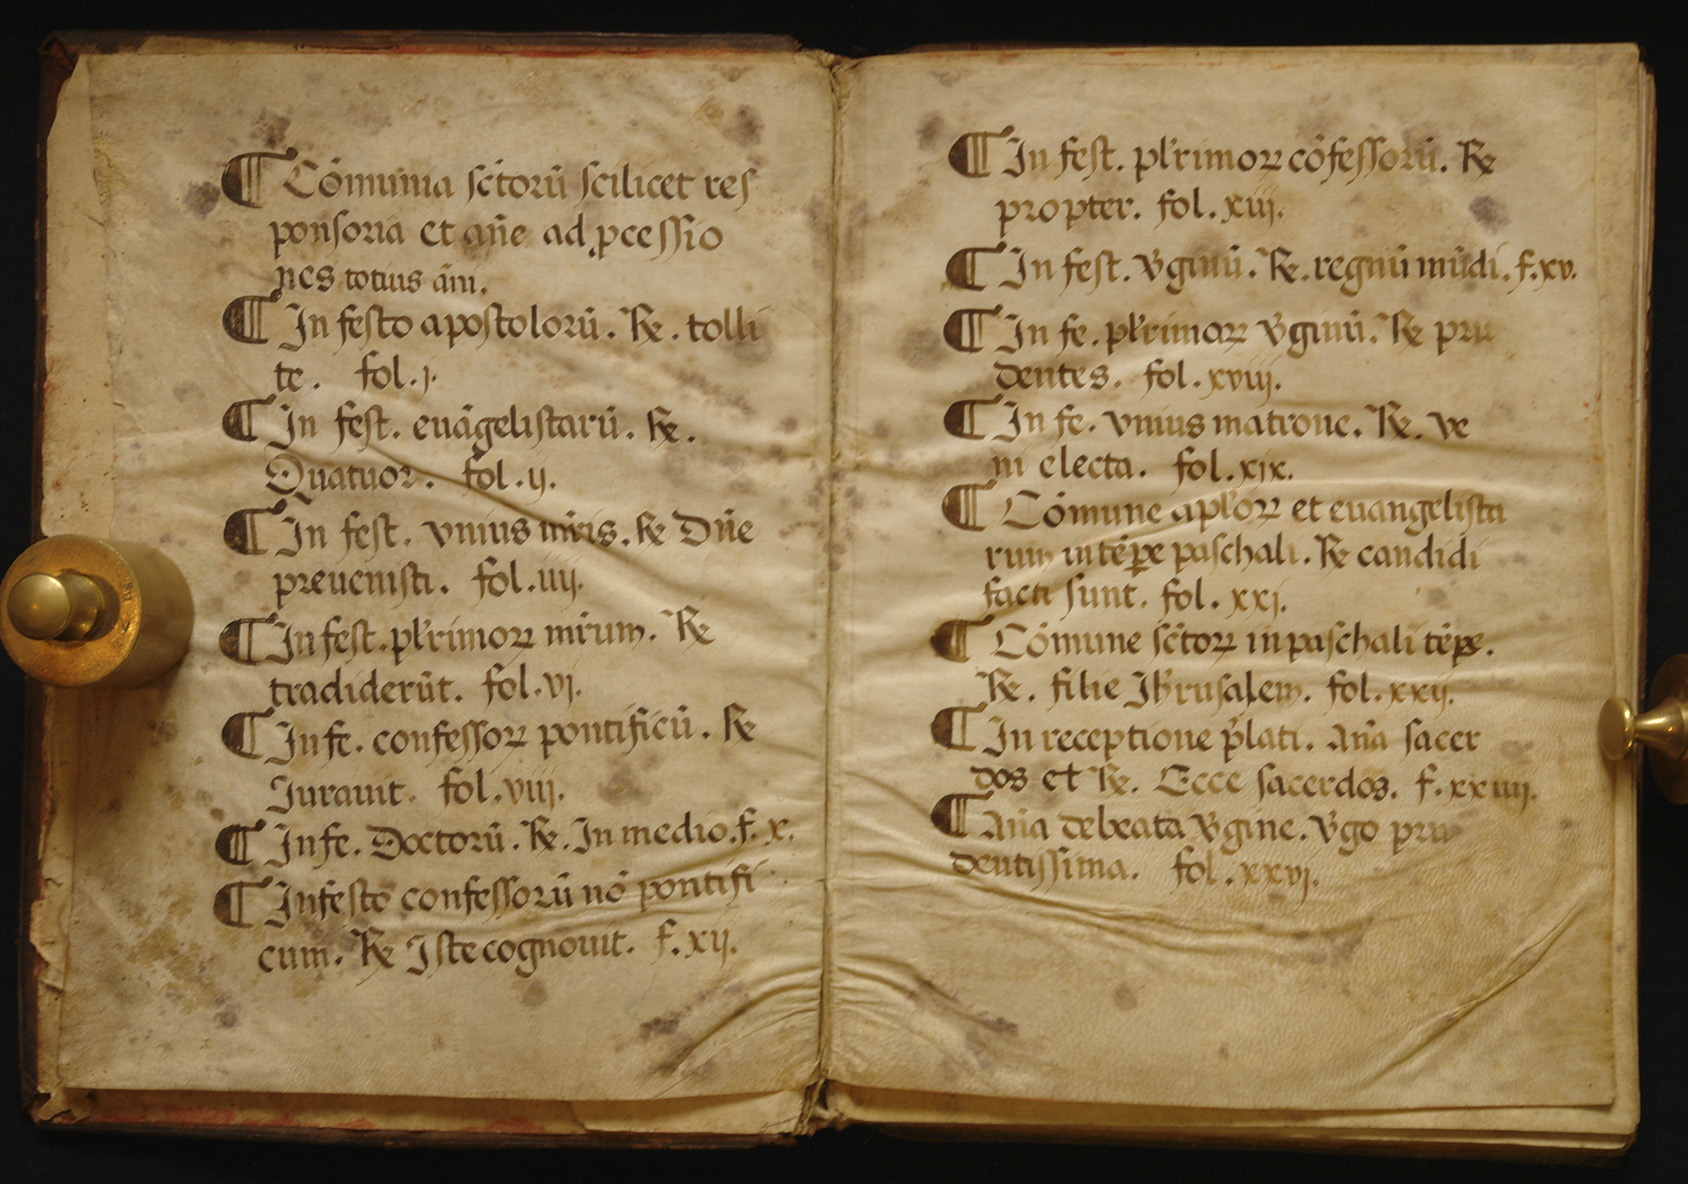 ¶ Cõmunia sc̃torũ scilicet res
ponsoria et añe ad ꝓcessio
nes totius añi.
¶ In festo apostolorũ. ℞. tolli
te. fol. j.
¶ In fest. euãgelistarũ. ℞.
Quatuor. fol. ij.
¶ In fest. vnius mr̃is. ℞ Dñe
preuenisti. fol. iiij.
¶ In fest. pl'rimoꝝ mr̃um. ℞
tradiderũt. fol. vj.
¶ In fe. confessoꝝ pontificũ. ℞
Iurauit. fol. viij.
¶ In fe. Doctorũ. ℞. In medio. f. x.
¶ In festo confessorũ nõ pontifi
cum. ℞ Iste cognouit. f. xij.
¶ In fest. pl'rimoꝝ cõfessorũ. ℞
propter. fol. xiij.
¶ In fest. v̉ginũ. ℞. regnũ mũdi. f. xv.
¶ In fe. pl'rimoꝝ v̉ginũ. ℞ pru
dentes. fol. xviij.
¶ In fe. vnius matrone. ℞. ve
ni electa. fol. xix.
¶ Cõmune apl'oꝝ et euangelista
rum in tẽꝑe paschali. ℞ candidi
facti sunt. fol. xxj.
¶ Cõmune sc̃toꝝ in paschali tẽꝑe.
℞. filie Ih'rusalem. fol. xxij.
¶ In receptione p̉lati. Añа sacer
dos et ℞. Ecce sacerdos. f. xxiiij.
¶ Aña de beata v̉gine. v̉go pru
dentissima. fol. xxvj.